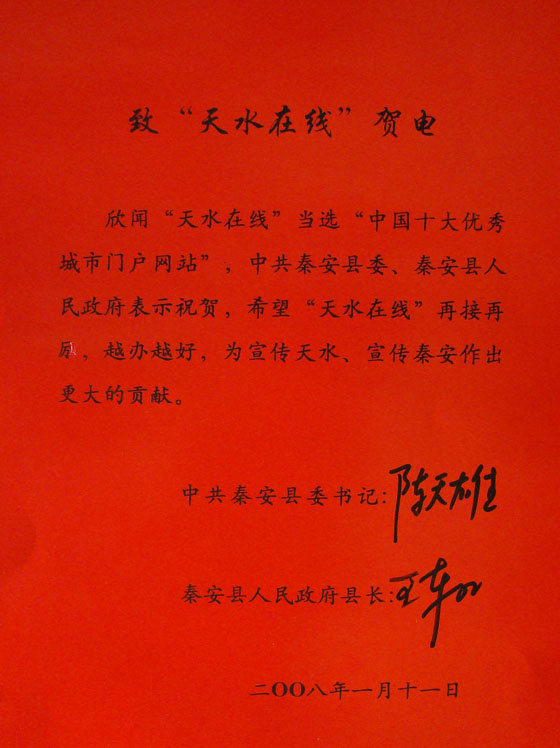 致“天水在线”贺电
欣闻“天水在线”当选“中国十大优秀
城市门户网站”，中共秦安县委、秦安县人
民政府表示祝贺，希望“天水在线”再接再
厉，越办越好，为宣传天水、宣传秦安作出
更大的贡献。
中共秦安县委书记:陈天雄
秦安县人民政府县长:王
二〇〇八年一月十一日